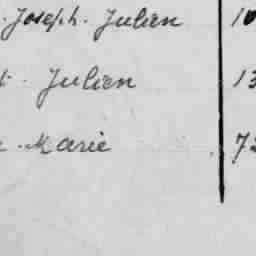 . Joseph. Julien 10
t. Julien 13
. Marie 72